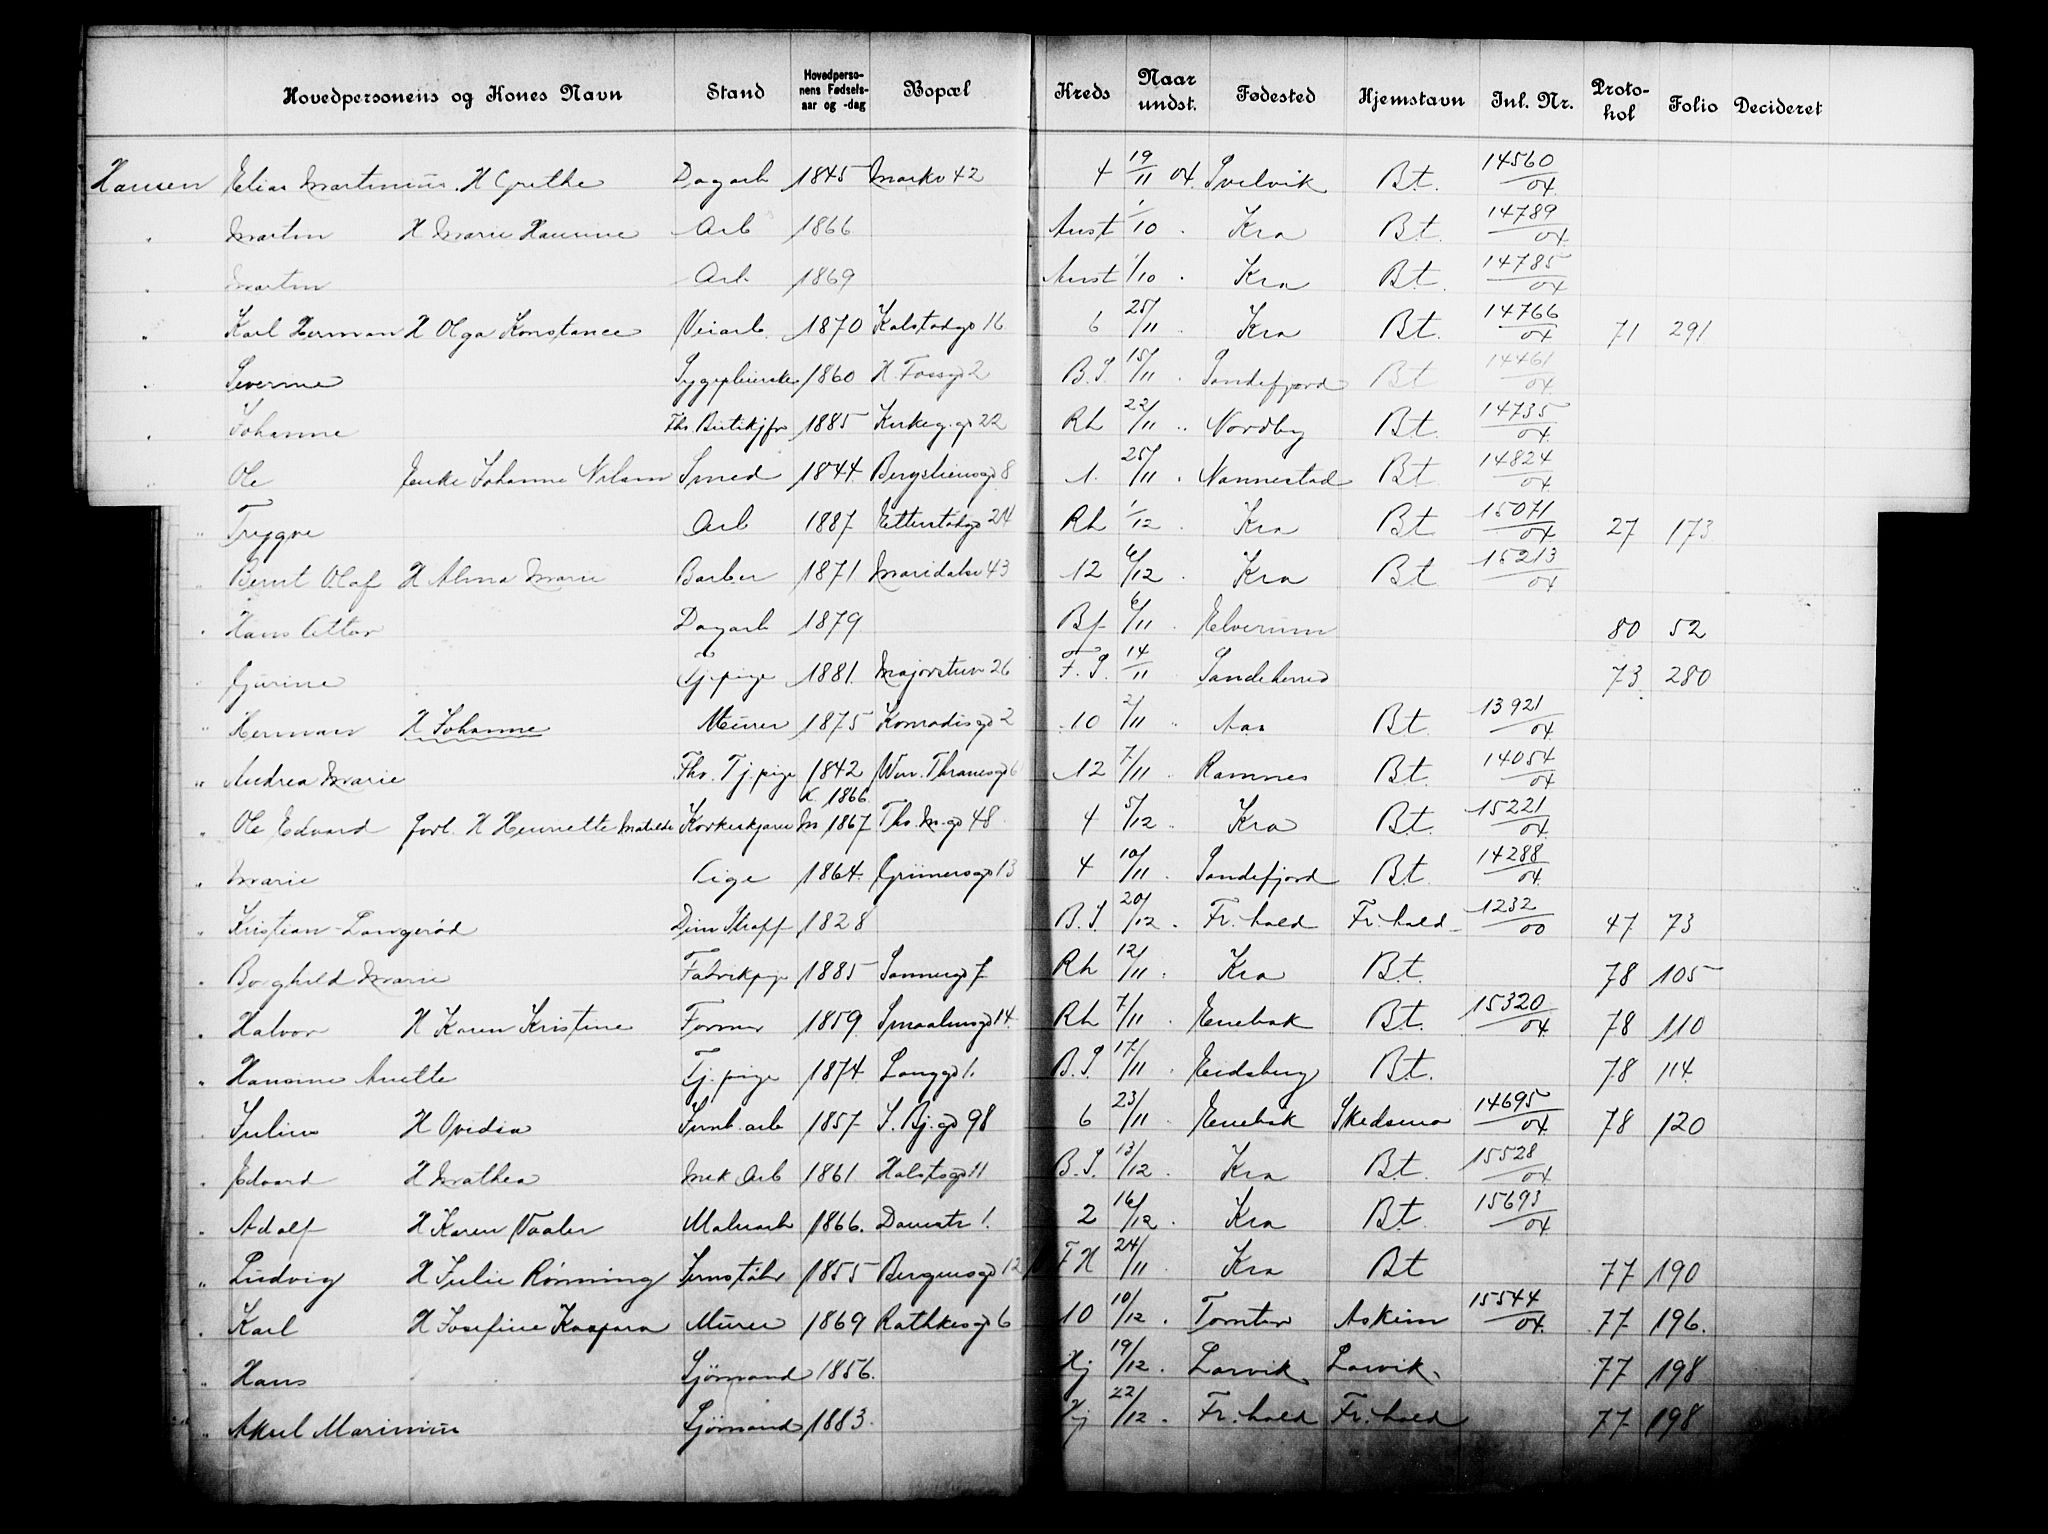 Hovedpersonens og Kones Navn Stand Hovedpersonens Fødselsaar og -dag Bopæl Kreds Naar undst. Fødested Hjemstavn Inl. Nr. Protokol Folio Decideret
Hansen Elias Martinius. H Grethe Dagarb 1845 Markv 42 4 19/11 04. Svelvik Bt. 14560/04.
" Martin H Marie Hansine Arb 1866 Anst 1/10 . Kra Bt. 14789/04.
" Martin Arb. 1869 Anst 1/10 . Kra Bt. 14785/04
" Karl Herman H Olga Konstance Veiarb. 1870 Kalstadgd 16 6 25/11 . Kra Bt. 14766/04 71 291
" Severine Sygepleierske 1860 H. Fossgd 2 B.S. 15/11 . Sandefjord Bt 14461/04.
" Johanne Fhv. Butikjfr 1885 Kirkeg.gd 22 Rh 22/11 " Nordby Bt. 14735/04.
" Ole Enke Johanne Nilsen Smed 1844. Bergsliensgd 8 1. 25/11 . Nannestad Bt. 14824/04
" Trygve Arb 1887 Etterstadgd 24 Rh 1/12 . Kra Bt 15071/04 27 173
" Bernt Olaf H Alma Marie Barber 1871 Maridalsv 43 12 6/12 . Kra Bt 15213/04
" Hans Ottar Dagarb 1879 Bf 6/11 . Elverum 80 52
" Gurine Tj.pige 1881. Majorstuv 26 F. S. 14/11 Sandeherred 73 280
" Herman H Johanne Murer 1875 Konradisgd 2 10 2/11 " Aas Bt. 13921/04.
" Andrea Marie Fhv. Tj.pige 1842 Wm. Thranesgd 6 12 7/11 . Ramnes Bt. 14054/04
" Ole Edvard forl. H Henriette Matilde Korkeskjærer K. 1866. M 1867. Ths. M.gd 48. 4 5/12 " Kra Bt. 15221/04.
" Marie Pige 1864. Grünersgd 13 4 10/11 . Sandefjord Bt. 14288/04.
" Kristian Langerød Dim Straff 1828 B.S. 20/12 . Fr.hald Fr.hald 1232/00 47 73
" Borghild Marie Fabrikpige 1885 Sannergd 7 Rh 12/11 . Kra Bt. 78 105
" Halvor H Karen Kristine Former 1859. Smaalensgd 14. Rh 7/11 . Enebak Bt. 15320/04. 78 110
" Hansine Anette Tj.pige 1874. Langgd 1. B.S. 17/11 . Eidsberg Bt. 78 114.
" Julius H Ovidia Jernb.arb 1857. S. Bj.gd 98 6 23/11 . Enebak Skedsmo 14695/04. 78 120
" Edvard H Mathea Mek Arb 1861. Holstsgd 11 B.S. 13/12 . Kra Bt. 15528/04
" Adolf H Karen Vaaler Malerarb 1866. Damstr 1. 2 16/12 . Kra Bt. 15693/04.
" Ludvig H Julie Rønning Jernstøber 1855 Bergensgd 12 F H 24/11 . Kra Bt 77 190
" Karl H Josefine Kaspara Murer 1869 Rathkesgd 6 10 10/12 . Tomter Askim 15544/04. 77 196.
" Hans Sjømand 1856. Hj 19/12 . Larvik Larvik. 77 198
" Aksel Marinius Sjømand 1883. Hj 22/12 . Fr.hald Fr.hald 77 198